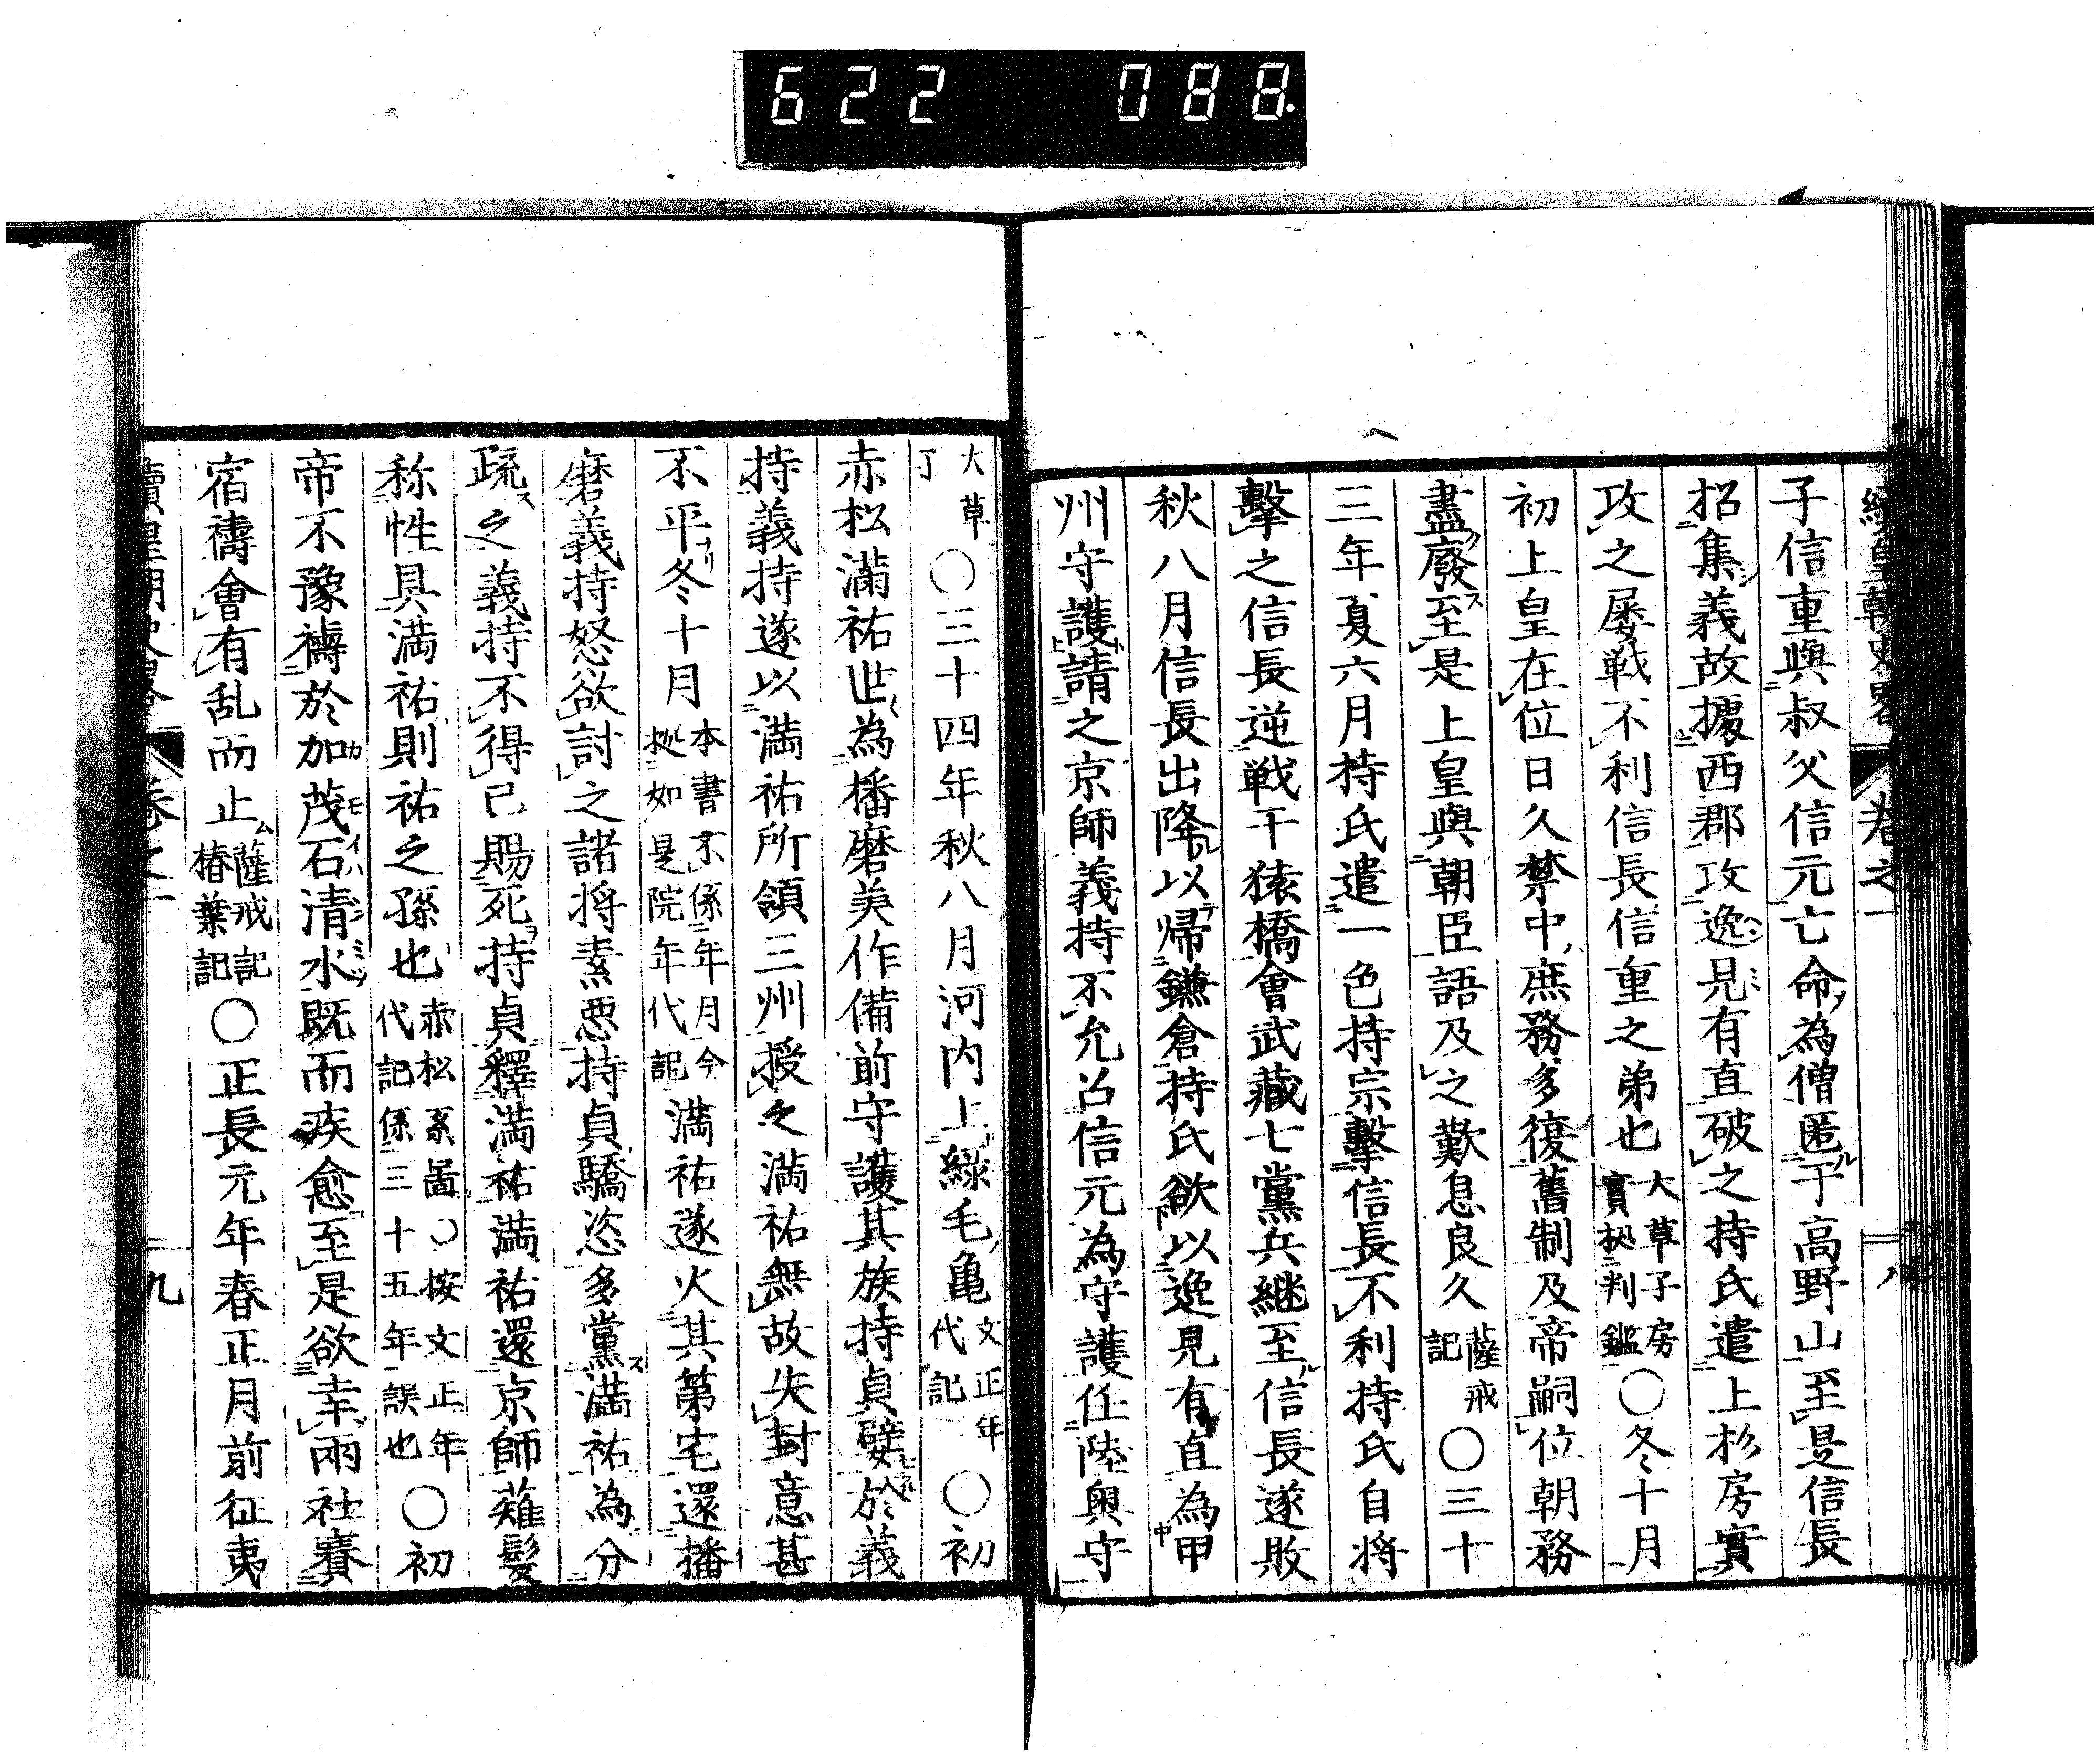 622 088.
續皇朝史畧 卷之一 八
子信重與叔父信元亡命為僧匿于高野山至是信長
招集義故據西郡攻逸見有直破之持氏遣上杉房實
攻之屡戦不利信長信重之弟也大草子房實拠判鑑〇冬十月
初上皇在位日久禁中庶務多復舊制及帝嗣位朝務
盡廢至是上皇與朝臣語及之歎息良久薩戒記〇三十
三年夏六月持氏遣一色持宗擊信長不利持氏自将
擊之信長逆戦于猿橋會武藏七黨兵継至信長遂敗
秋八月信長出降以帰鎌倉持氏欲以逸見有直為甲
州守護請之京師義持不允召信元為守護任陸奥守
大草丁〇三十四年秋八月河内上緑毛亀文正年代記〇初
赤松満祐世為播磨美作備前守護其族持貞嬖於義
持義持遂以満祐所領三州授之満祐無故失封意甚
不平冬十月本書不係年月今拠如是院年代記満祐遂火其第宅還播
磨義持怒欲討之諸将素悪持貞驕恣多黨満祐為分
疏之義持不得已賜死持貞釋満祐満祐還京師薙髪
称性具満祐則祐之孫也赤松系啚〇按文正年代記係三十五年誤也〇初
帝不豫禱於加茂石清水既而疾愈至是欲幸兩社賽
宿禱會有乱而止薩戒記椿葉記〇正長元年春正月前征夷
續皇朝史畧 卷之一 九